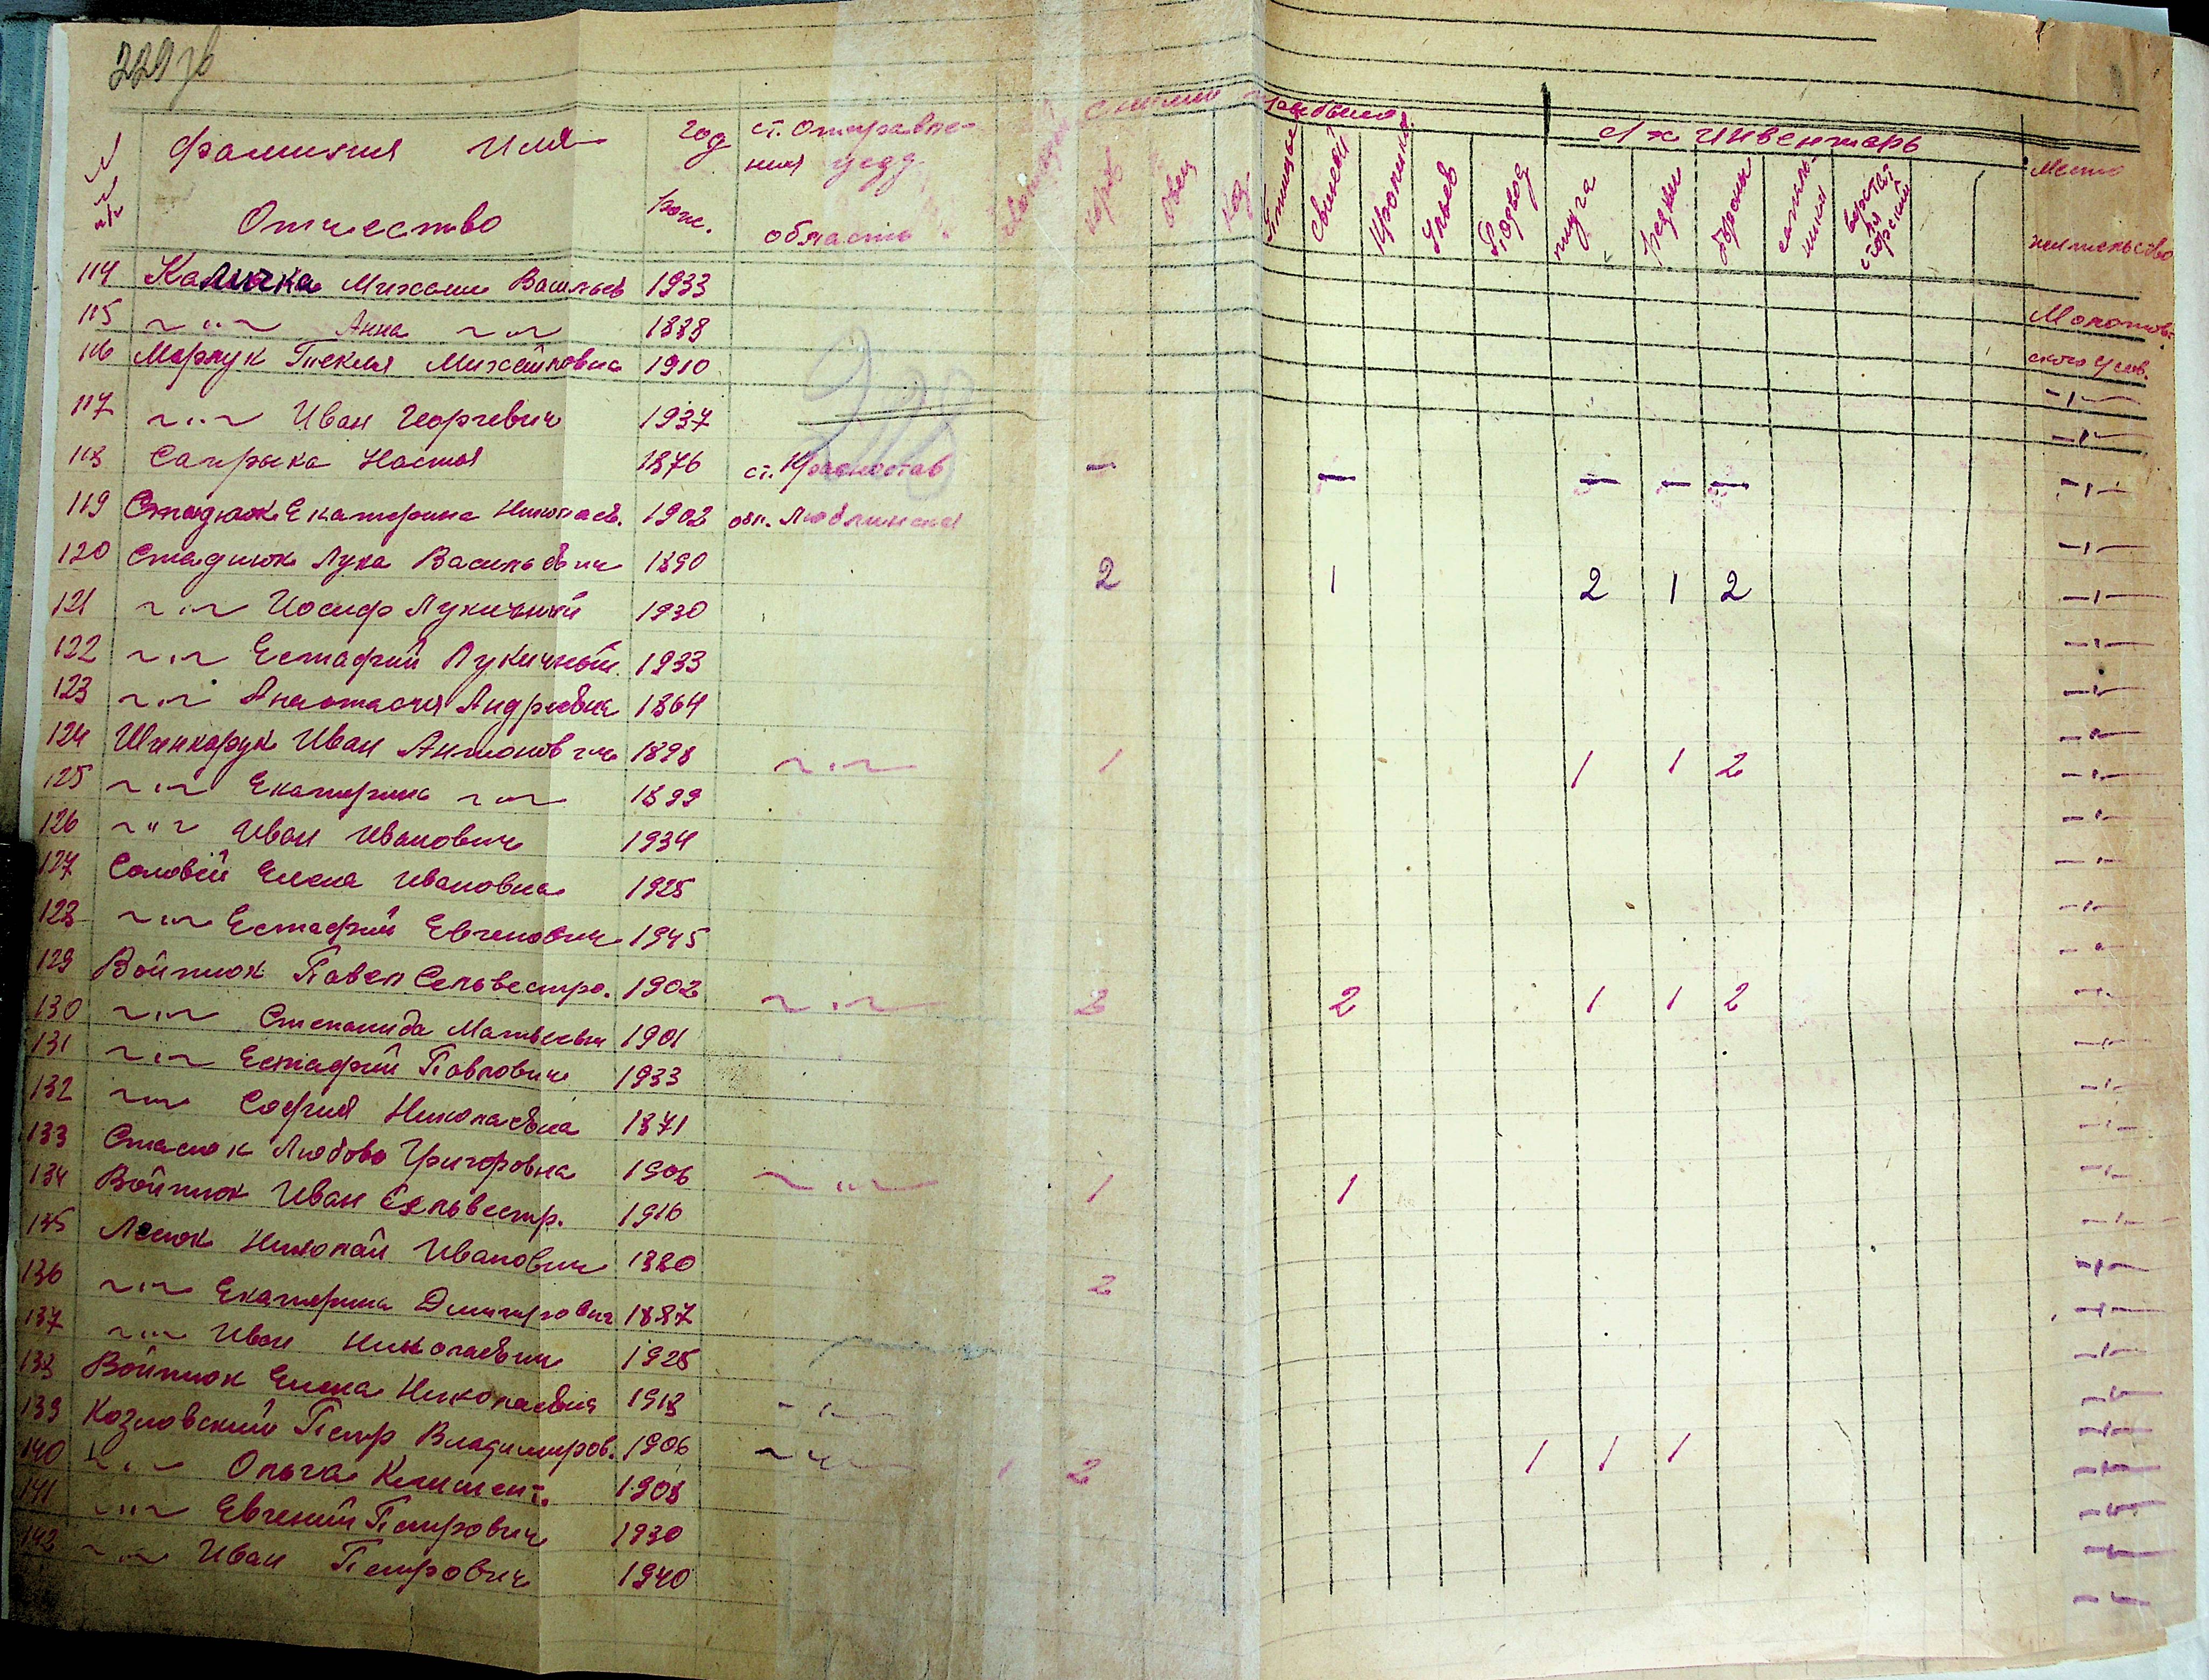 229 зв
с ними прибыло
с/х инвентарь
№ № п/п
Фамилия Имя Отчество
год рож.
ст. отправле-
ния уезд
область
лошадей
коров
овец
коз
птицы
свиней
кроликов
ульев
подвод
плуга
боронь
место
жительство
114 Калička Михаил Васильев 1933
115 ~ " ~ Анна ~ " ~ 1888
Молотов-
116 Марчук Текля Михайловна 1910
ского у сов.
117 ~ " ~ Иван Георгевич 1937
118 Сапрыка Настя 1876 ст. Красностав — — — — —
119 Стадюк Екатерина Николаев. 1902 обл. Люблинская
120 Стадиюк Лука Васильевич 1890 2 1 2 1 2
121 ~ " ~ Иосиф Лукичный 1930
122 ~ " ~ Естафий Лукичный 1933
123 ~ " ~ Анастасия Андревна 1864
124 Шинкарук Иван Антонович 1898 ~ " ~ 1 1 1 2
125 ~ " ~ Екатерина ~ " ~ 1899
126 ~ " ~ Иван Иванович 1934
127 Соловей Елена Ивановна 1925
128 ~ " ~ Естафий Евгенович 1945
129 Войтюк Павел Сельвестро. 1902 ~ " ~ 2 2 1 1 2
130 ~ " ~ Степанида Матвеевн 1901
131 ~ " ~ Естафий Павлович 1933
132 ~ " ~ София Николаевна 1871
133 Стасюк Любовь Григоровна 1906 ~ " ~ 1 1
134 Войтюк Иван Сельвестр. 1916
135 Лесюк Николай Иванович 1880
136 ~ " ~ Екатерина Дмитрович 1887 2
137 ~ " ~ Иван Николаевич 1925
138 Войтюк Елена Николаевна 1918 ~ " ~
139 Козловский Петр Владимиров. 1906 ~ " ~ 1 2 1 1 1
140 ~ " ~ Ольга Климент. 1908
141 ~ " ~ Евгений Петрович 1930
142 ~ " ~ Иван Петрович 1940